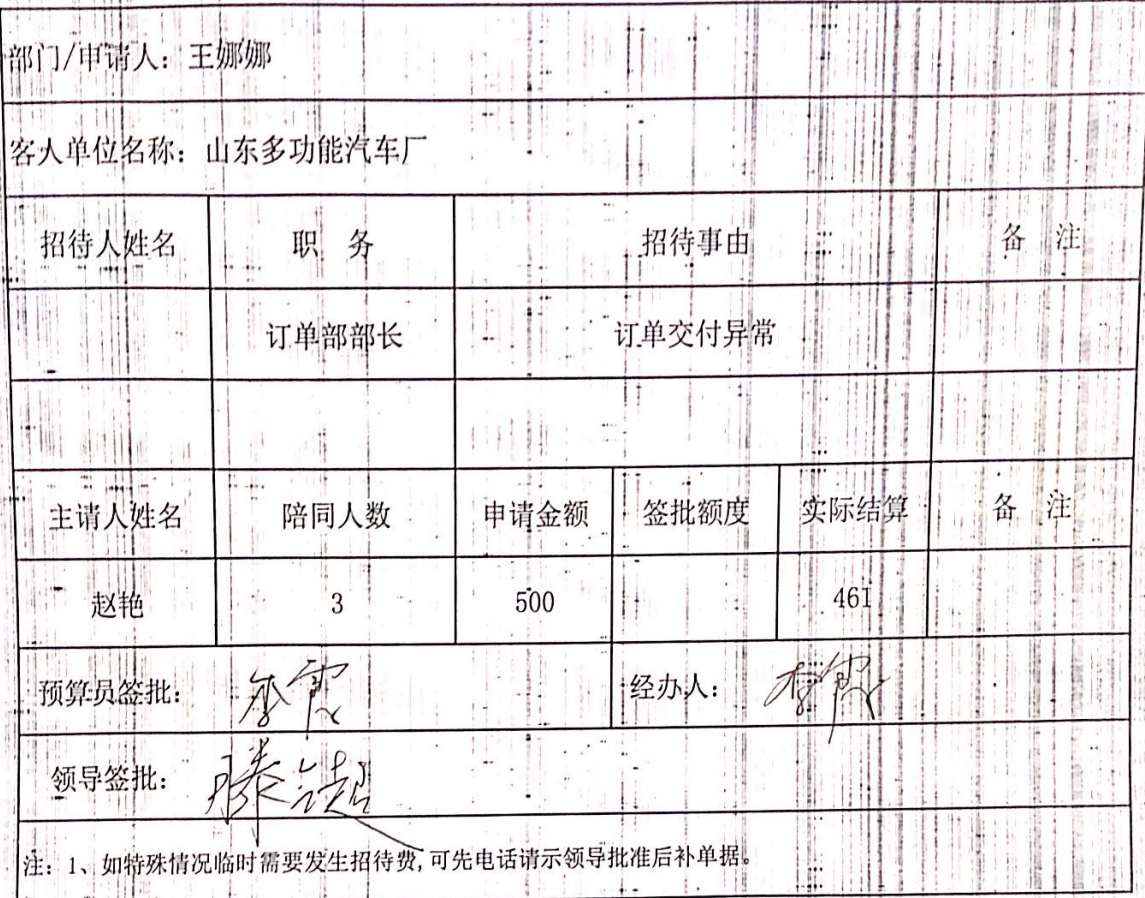 部门/申请人：王娜娜
客人单位名称：山东多功能汽车厂
招待人姓名 职 务 招待事由 备 注
订单部部长 订单交付异常
主请人姓名 陪同人数 申请金额 签批额度 实际结算 备 注
赵艳 3 500 461
预算员签批： 李霞 经办人： 李霞
领导签批：
注：1、如特殊情况临时需要发生招待费,可先电话请示领导批准后补单据。